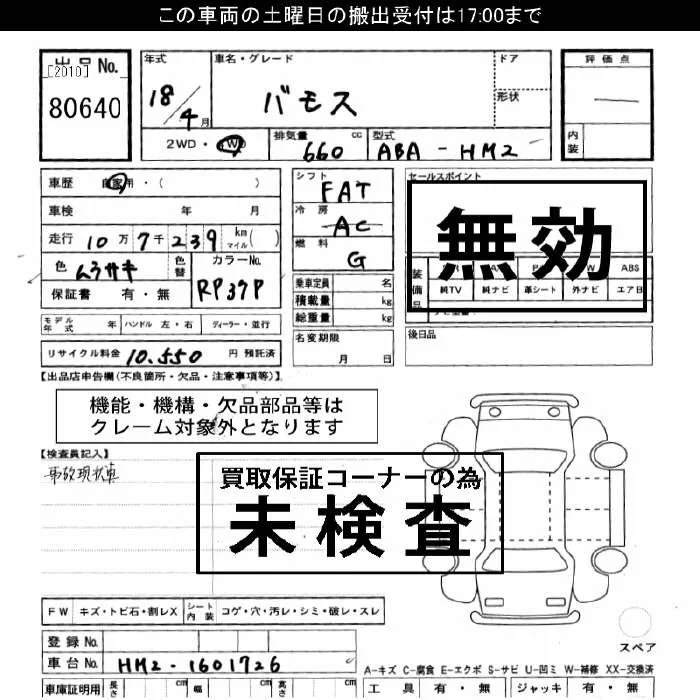 この車両の土曜日の搬出受付は17:00まで
出品No.
[2010]
80640
年式
18/4月
車名・グレード
バモス
ドア
形状
評価点
―
内装
2WD・4WD
排気量 cc
660
型式
ABA-HM2
車歴 自家用・( )
車検 年 月
走行 10万7千239 km マイル( )
色 ムラサキ
色替
カラーNo.
RP37P
保証書 有・無
シフト
FAT
冷房
AC
燃料
G
乗車定員 名
積載量 kg
総重量 kg
セールスポイント
無効
装備品
ABS
純TV 純ナビ 革シート 外ナビ エア日
モデル年式 年 ハンドル 左・右 ディーラー・並行
名変期限
月 日
後日品
リサイクル料金 10.550 円 預託済
【出品店申告欄(不良箇所・欠品・注意事項等)】
機能・機構・欠品部品等は
クレーム対象外となります
【検査員記入】
事故現状車
買取保証コーナーの為
未検査
FW キズ・トビ石・割レX シート内装 コゲ・穴・汚レ・シミ・破レ・スレ
スペア
登録No.
車台No. HM2-1601726
A-キズ C-腐食 E-エクボ S-サビ U-凹ミ W-補修 XX-交換済
車庫証明用 長さ cm 幅 cm 高さ cm
工具 有・無 ジャッキ 有・無